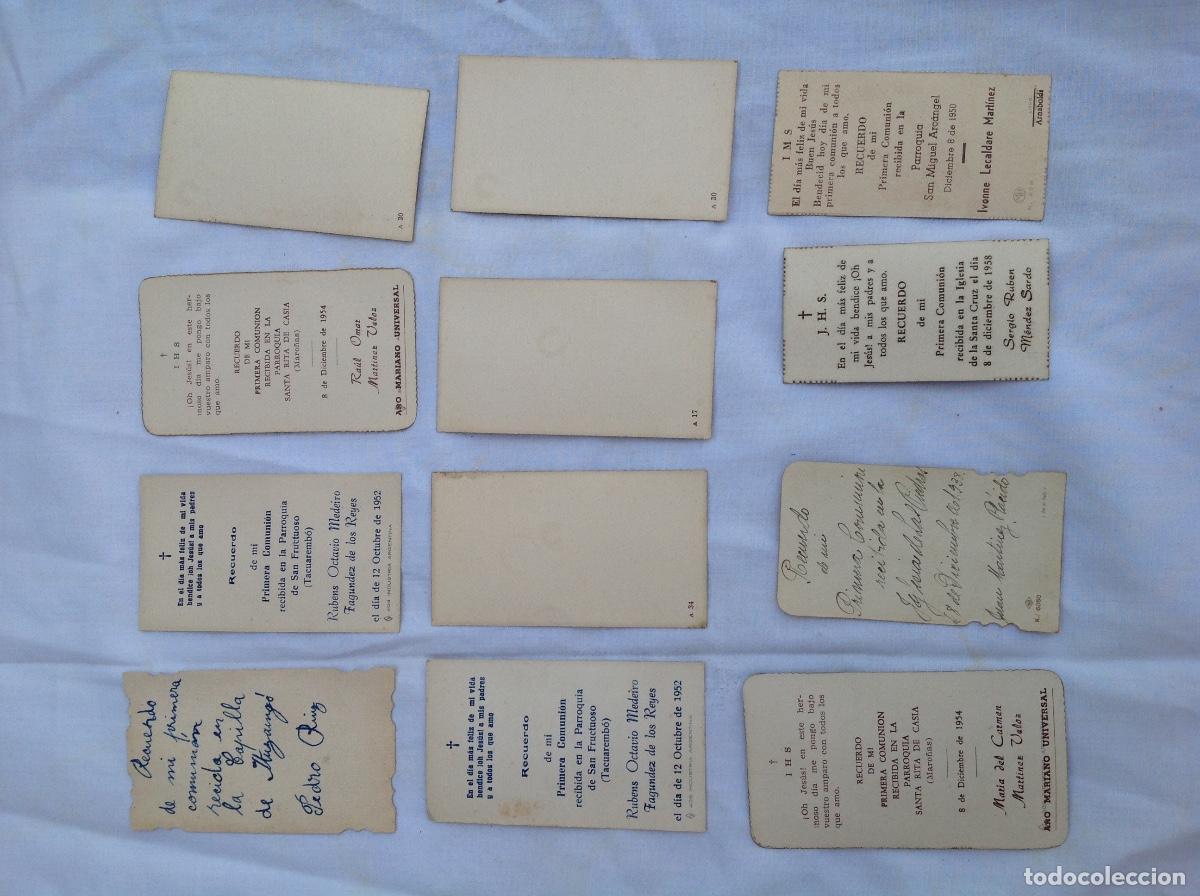 A 20
A 20
I M S
El día más feliz de mi vida
Buen Jesús
Bendecid hoy día de mi
primera comunión a todos
los que amo.
RECUERDO
de mi
Primera Comunión
recibida en la
Parroquia
San Miguel Arcángel
Diciembre 8 de 1950
Ivonne Lecaldare Martínez
Arnaboldi
†
I H S
¡Oh Jesús! en este her-
moso día me pongo bajo
vuestro amparo con todos los
que amo.
RECUERDO
DE MI
PRIMERA COMUNION
RECIBIDA EN LA
PARROQUIA
SANTA RITA DE CASIA
(Maroñas)
8 de Diciembre de 1954
Raúl Omar
Martínez Veloz
AÑO MARIANO UNIVERSAL
A 17
†
J. H. S.
En el día más feliz de
mi vida bendice ¡Oh
Jesús! a mis padres y a
todos los que amo.
RECUERDO
de mi
Primera Comunión
recibida en la Iglesia
de la Santa Cruz el día
8 de diciembre de 1958
Sergio Ruben
Méndez Sardo
†
En el día más feliz de mi vida
bendice ¡oh Jesús! a mis padres
y a todos los que amo
Recuerdo
de mi
Primera Comunión
recibida en la Parroquia
de San Fructuoso
(Tacuarembó)
Rubens Octavio Medeiro
Fagundez de los Reyes
el día de 12 Octubre de 1952
INDUSTRIA ARGENTINA
A 34
Recuerdo
de mi
Primera Comunión
recibida en la
Iglesia de las Piedras
8 de Diciembre de 1938
Juan Martínez Plácido
Recuerdo
de mi primera
comunión
recida en
la Capilla
de Ituzaingó
Pedro Ruiz
†
En el día más feliz de mi vida
bendice ¡oh Jesús! a mis padres
y a todos los que amo
Recuerdo
de mi
Primera Comunión
recibida en la Parroquia
de San Fructuoso
(Tacuarembó)
Rubens Octavio Medeiro
Fagundez de los Reyes
el día de 12 Octubre de 1952
INDUSTRIA ARGENTINA
†
I H S
¡Oh Jesús! en este her-
moso día me pongo bajo
vuestro amparo con todos los
que amo.
RECUERDO
DE MI
PRIMERA COMUNION
RECIBIDA EN LA
PARROQUIA
SANTA RITA DE CASIA
(Maroñas)
8 de Diciembre de 1954
María del Carmen
Martínez Veloz
AÑO MARIANO UNIVERSAL
todocoleccion